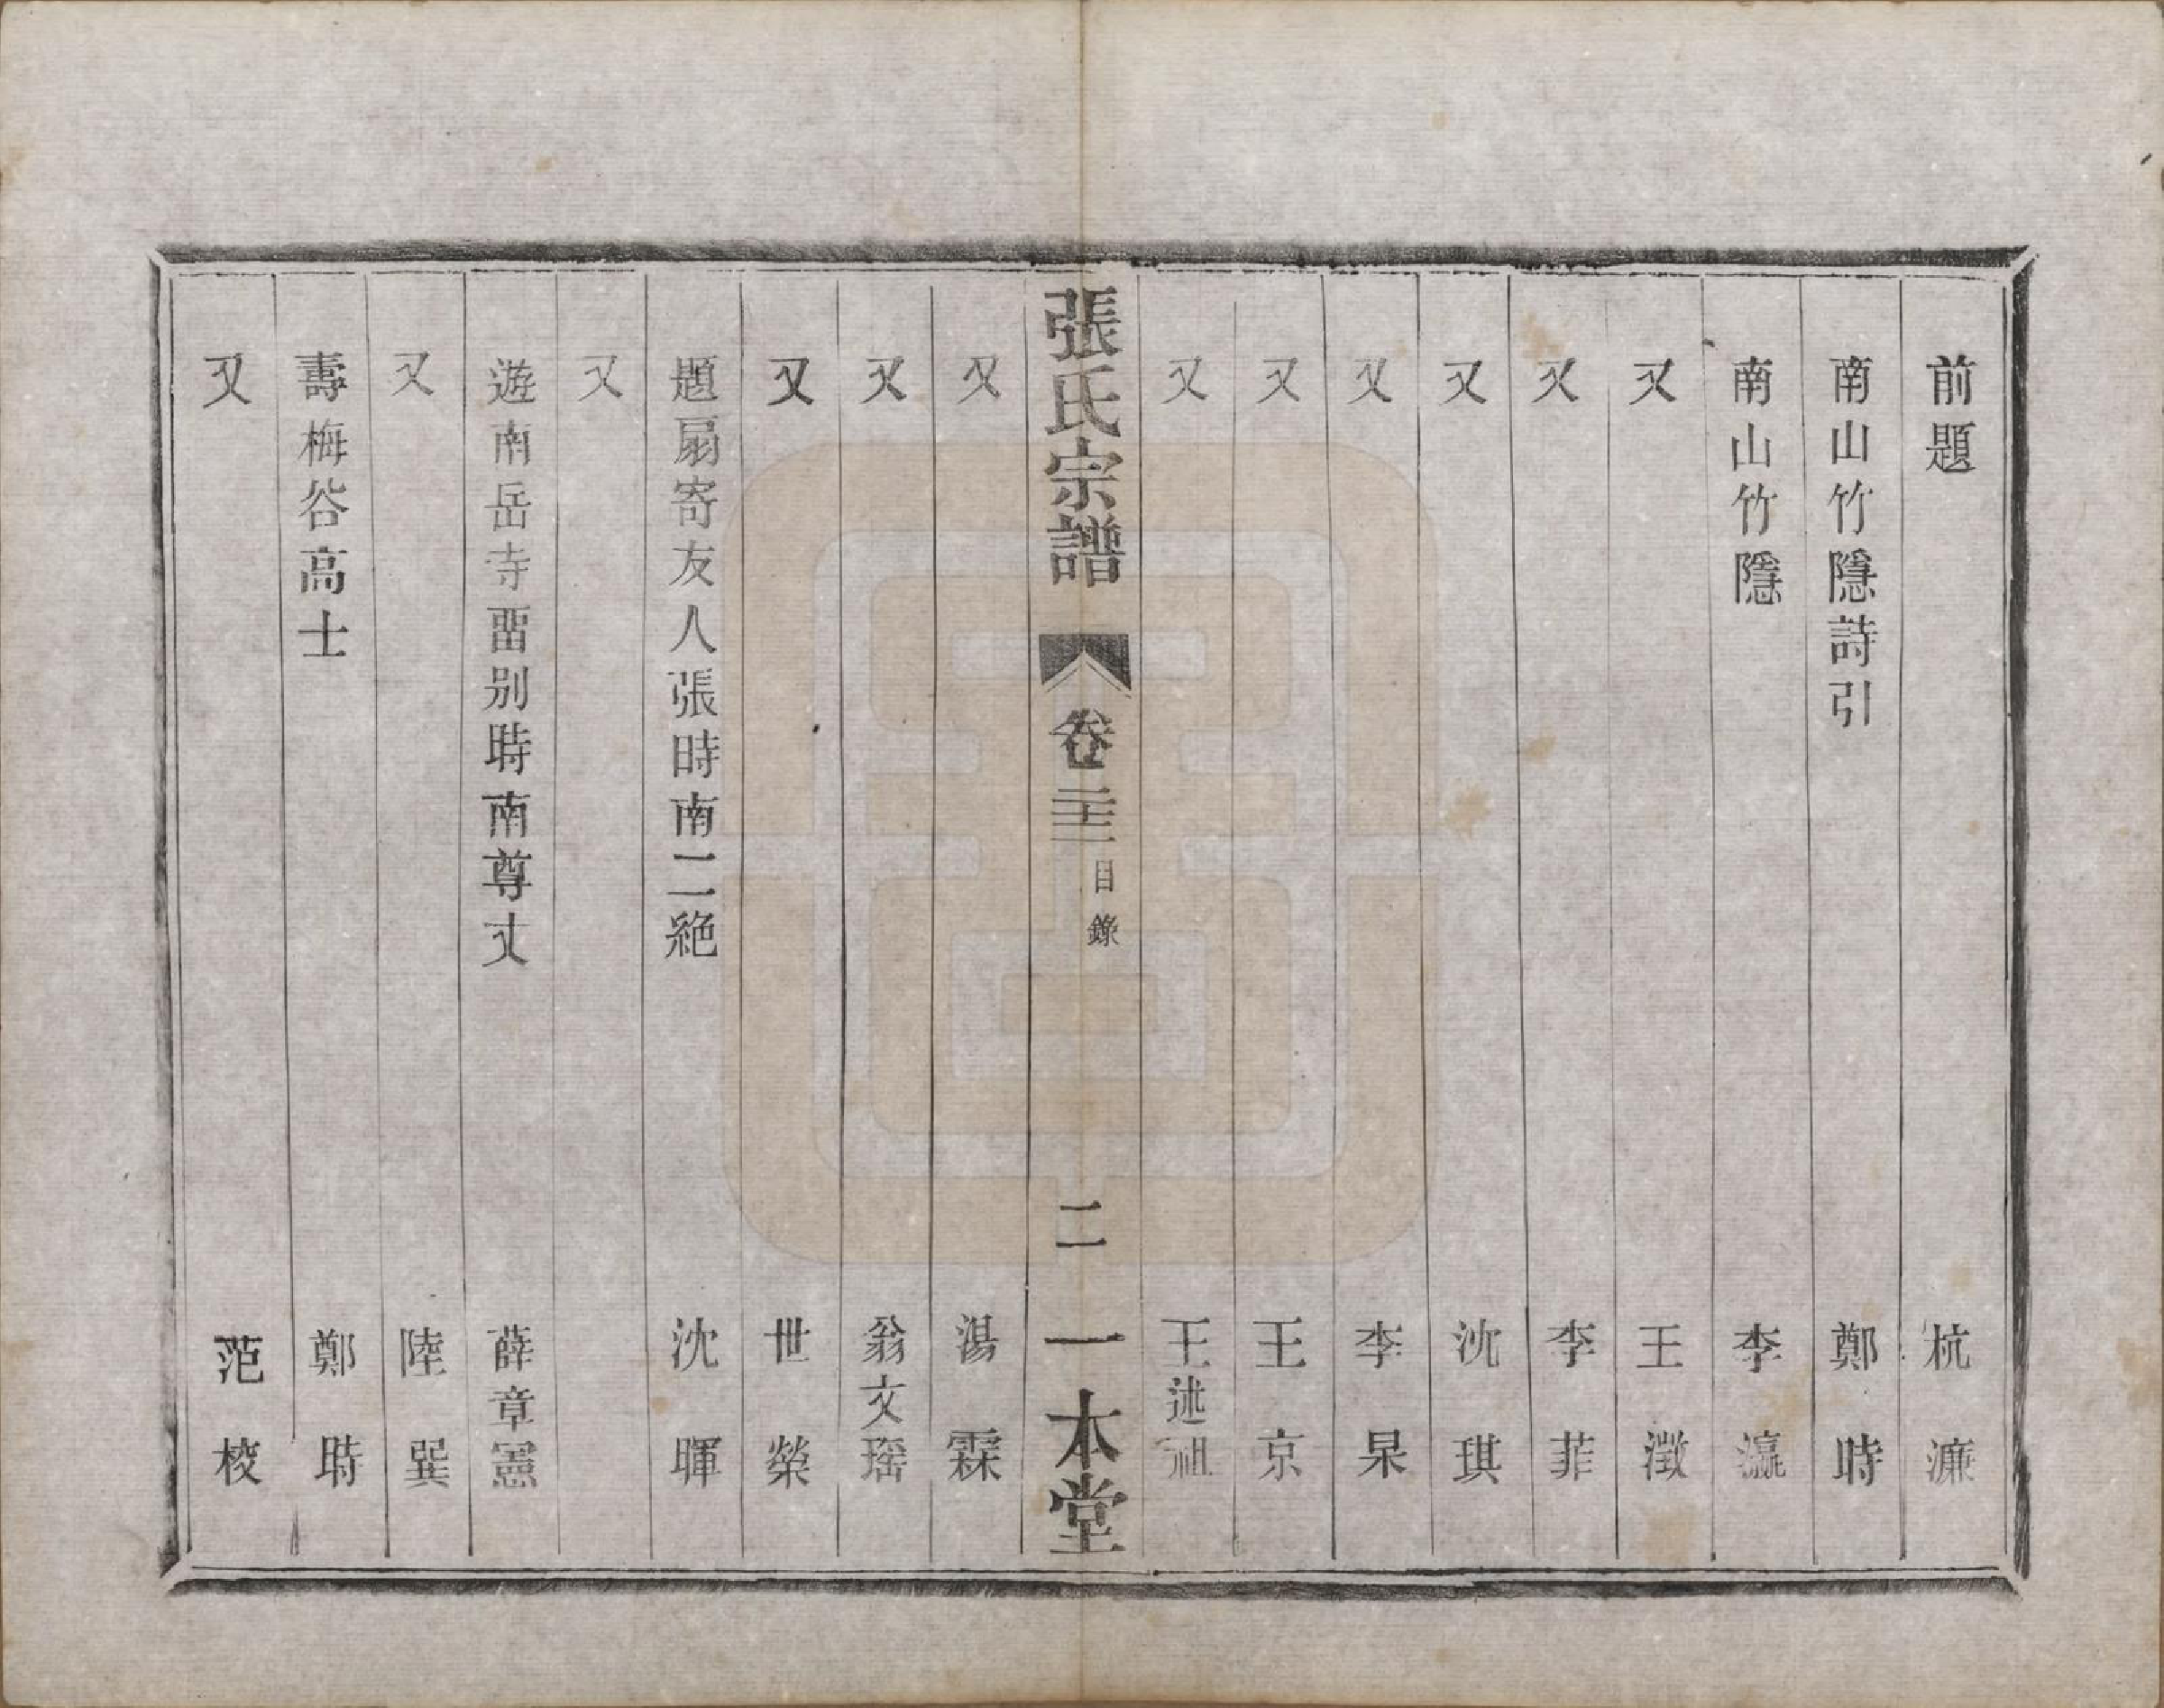 前題 杭濂
南山竹隱詩引 鄭時
南山竹隱 李瀛
又 王澂
又 李菲
又 沈琪
又 李杲
又 王京
又 王述祖
張氏宗譜 卷二十三 目錄 二 一本堂
又 湯霖
又 翁文瑶
又 世榮
題扇寄友人張時南二絶 沈暉
又
遊南岳寺畱别時南尊丈 薛章憲
又 陸巽
壽梅谷高士 鄭時
又 范棱